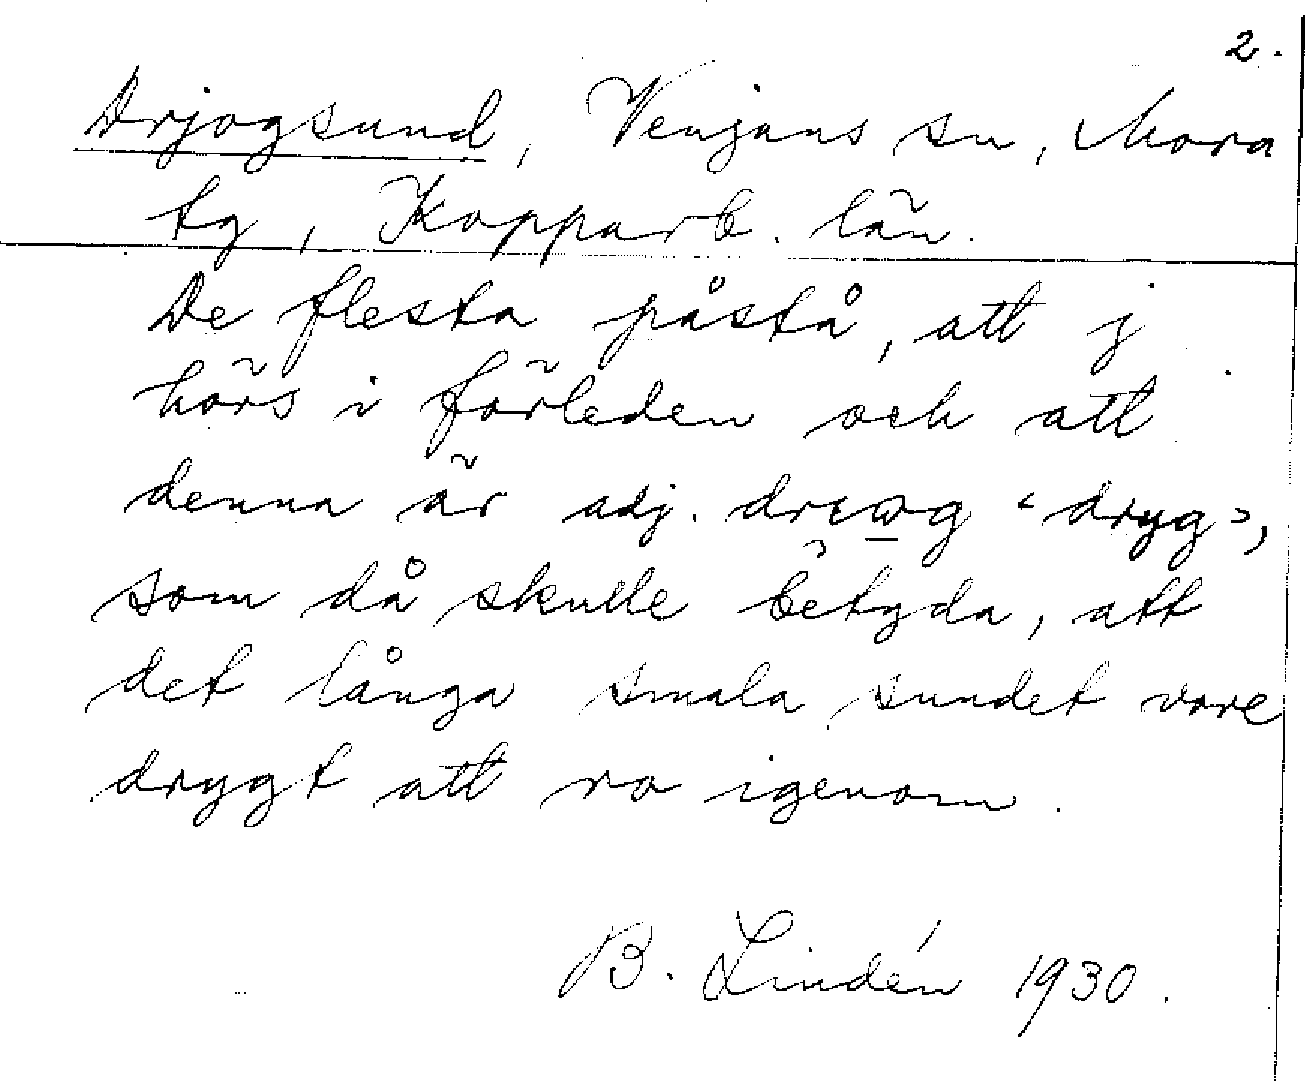 2.
Drjogsund, Venjans sn, Mora
tg, Kopparb. län.
De flesta påstå, att j
hörs i förleden och att
denna är adj. "dryg",
som då skulle betyda, att
det långa smala sundet vore
drygt att ro igenom.
B. Lindén 1930.